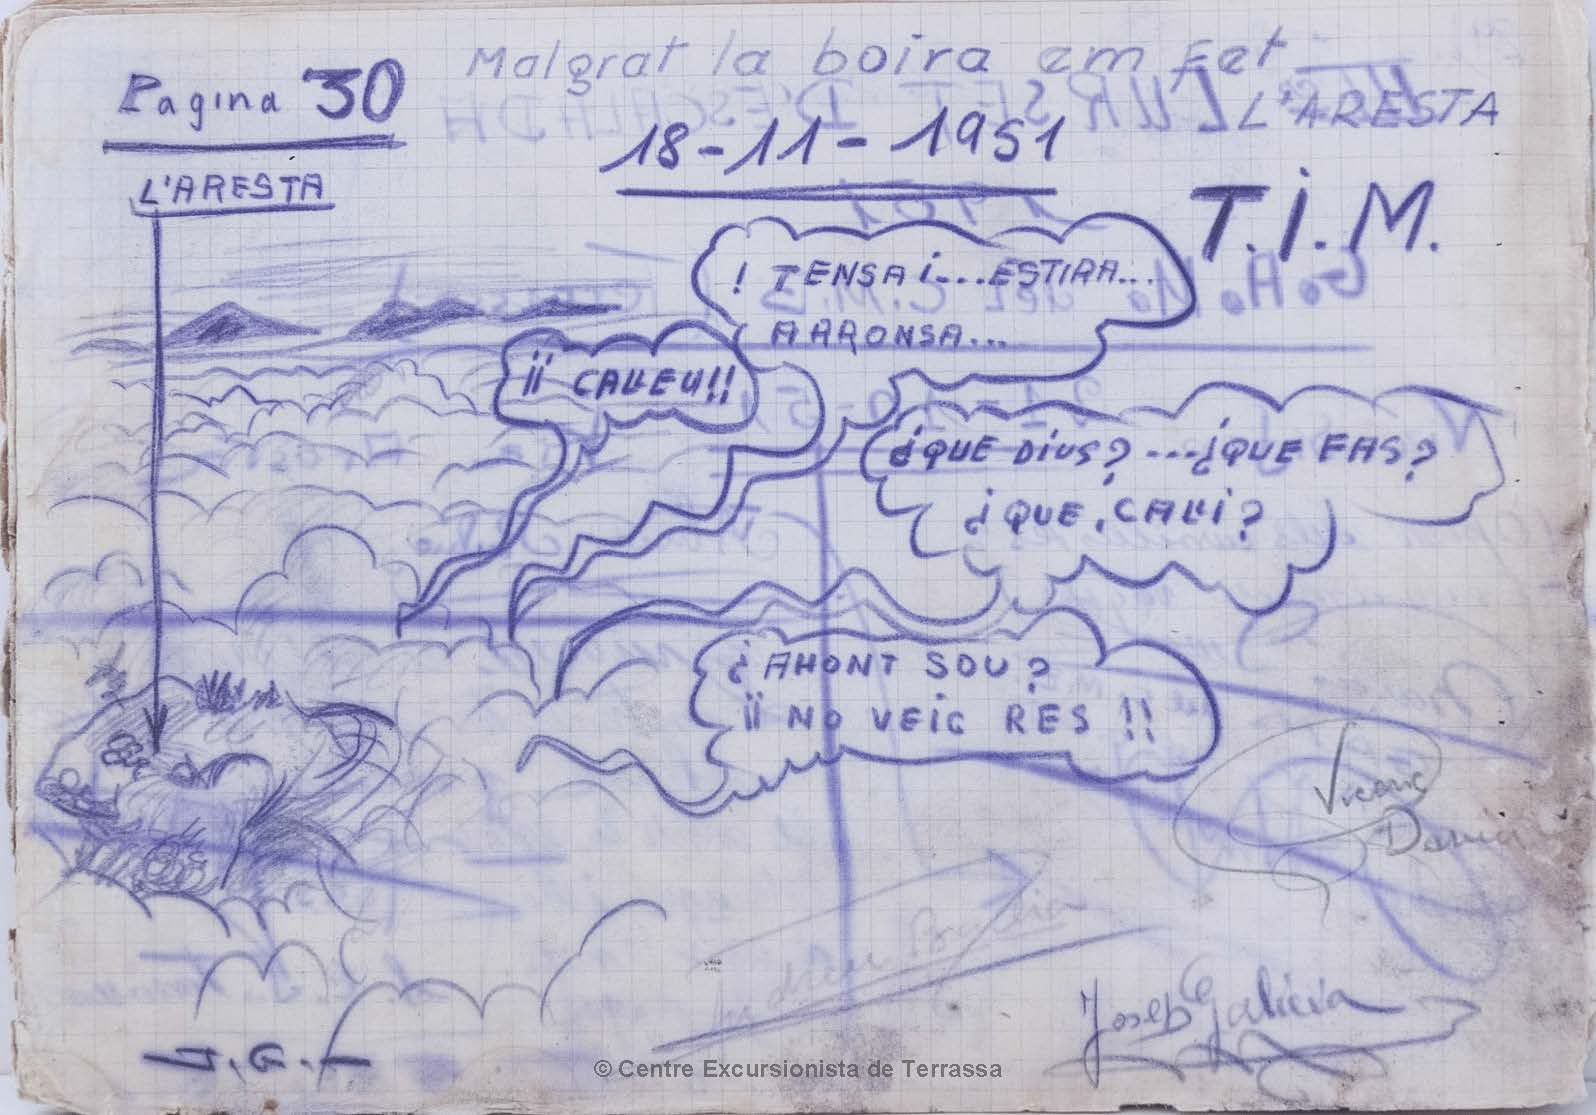 Malgrat la boira em Fet
L'ARESTA
Pagina 30
18-11-1951
L'ARESTA
T.i.M.
! TENSA i...ESTIRA...
ARRONSA...
¡¡ CALLEU!!
¿QUE DIUS?...¿QUE FAS?
¿QUE, CALLI?
¿AHONT SOU?
¡¡ NO VEIG RES !!
Vicenç
Josep Galicia
J.G.
© Centre Excursionista de Terrassa